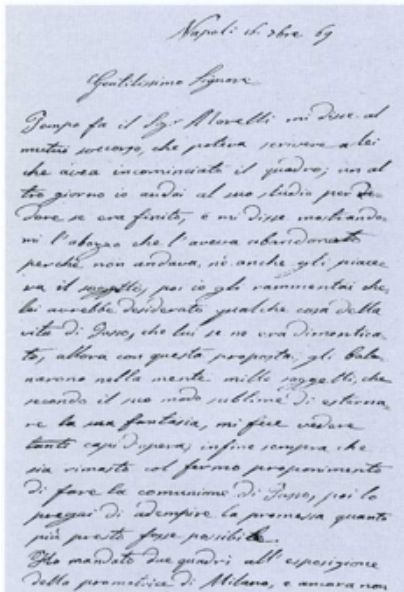 Napoli 16. 9bre 69
Gentilissimo Signore
Tempo fa il Sigr Morelli mi disse al
mutuo soccorso, che poteva scrivere a lei
che avea incominciato il quadro; un al
tro giorno io andai al suo studio per ve-
dere se era finito, e mi disse mostrando
mi l'abozzo che l'aveva abandonato
perchè non andava, nè anche gli piace
va il soggetto, poi io gli rammentai che
lei avrebbe desiderato qualche cosa della
vita di Tasso, che lui se ne era dimentica-
to, allora con questa proposta, gli bale
narono nella mente mille soggetti, che
secondo il suo modo sublime di esterna
re la sua fantasia, mi fece vedere
tanti capi d'opera, infine sempra che
sia rimasto col fermo proponimento
di fare la comunione di Tasso, poi lo
pregai di adempire la promessa quanto
più presto fosse possibile.
Ho mandato due quadri all'esposizione
della promotrice di Milano, e ancora non